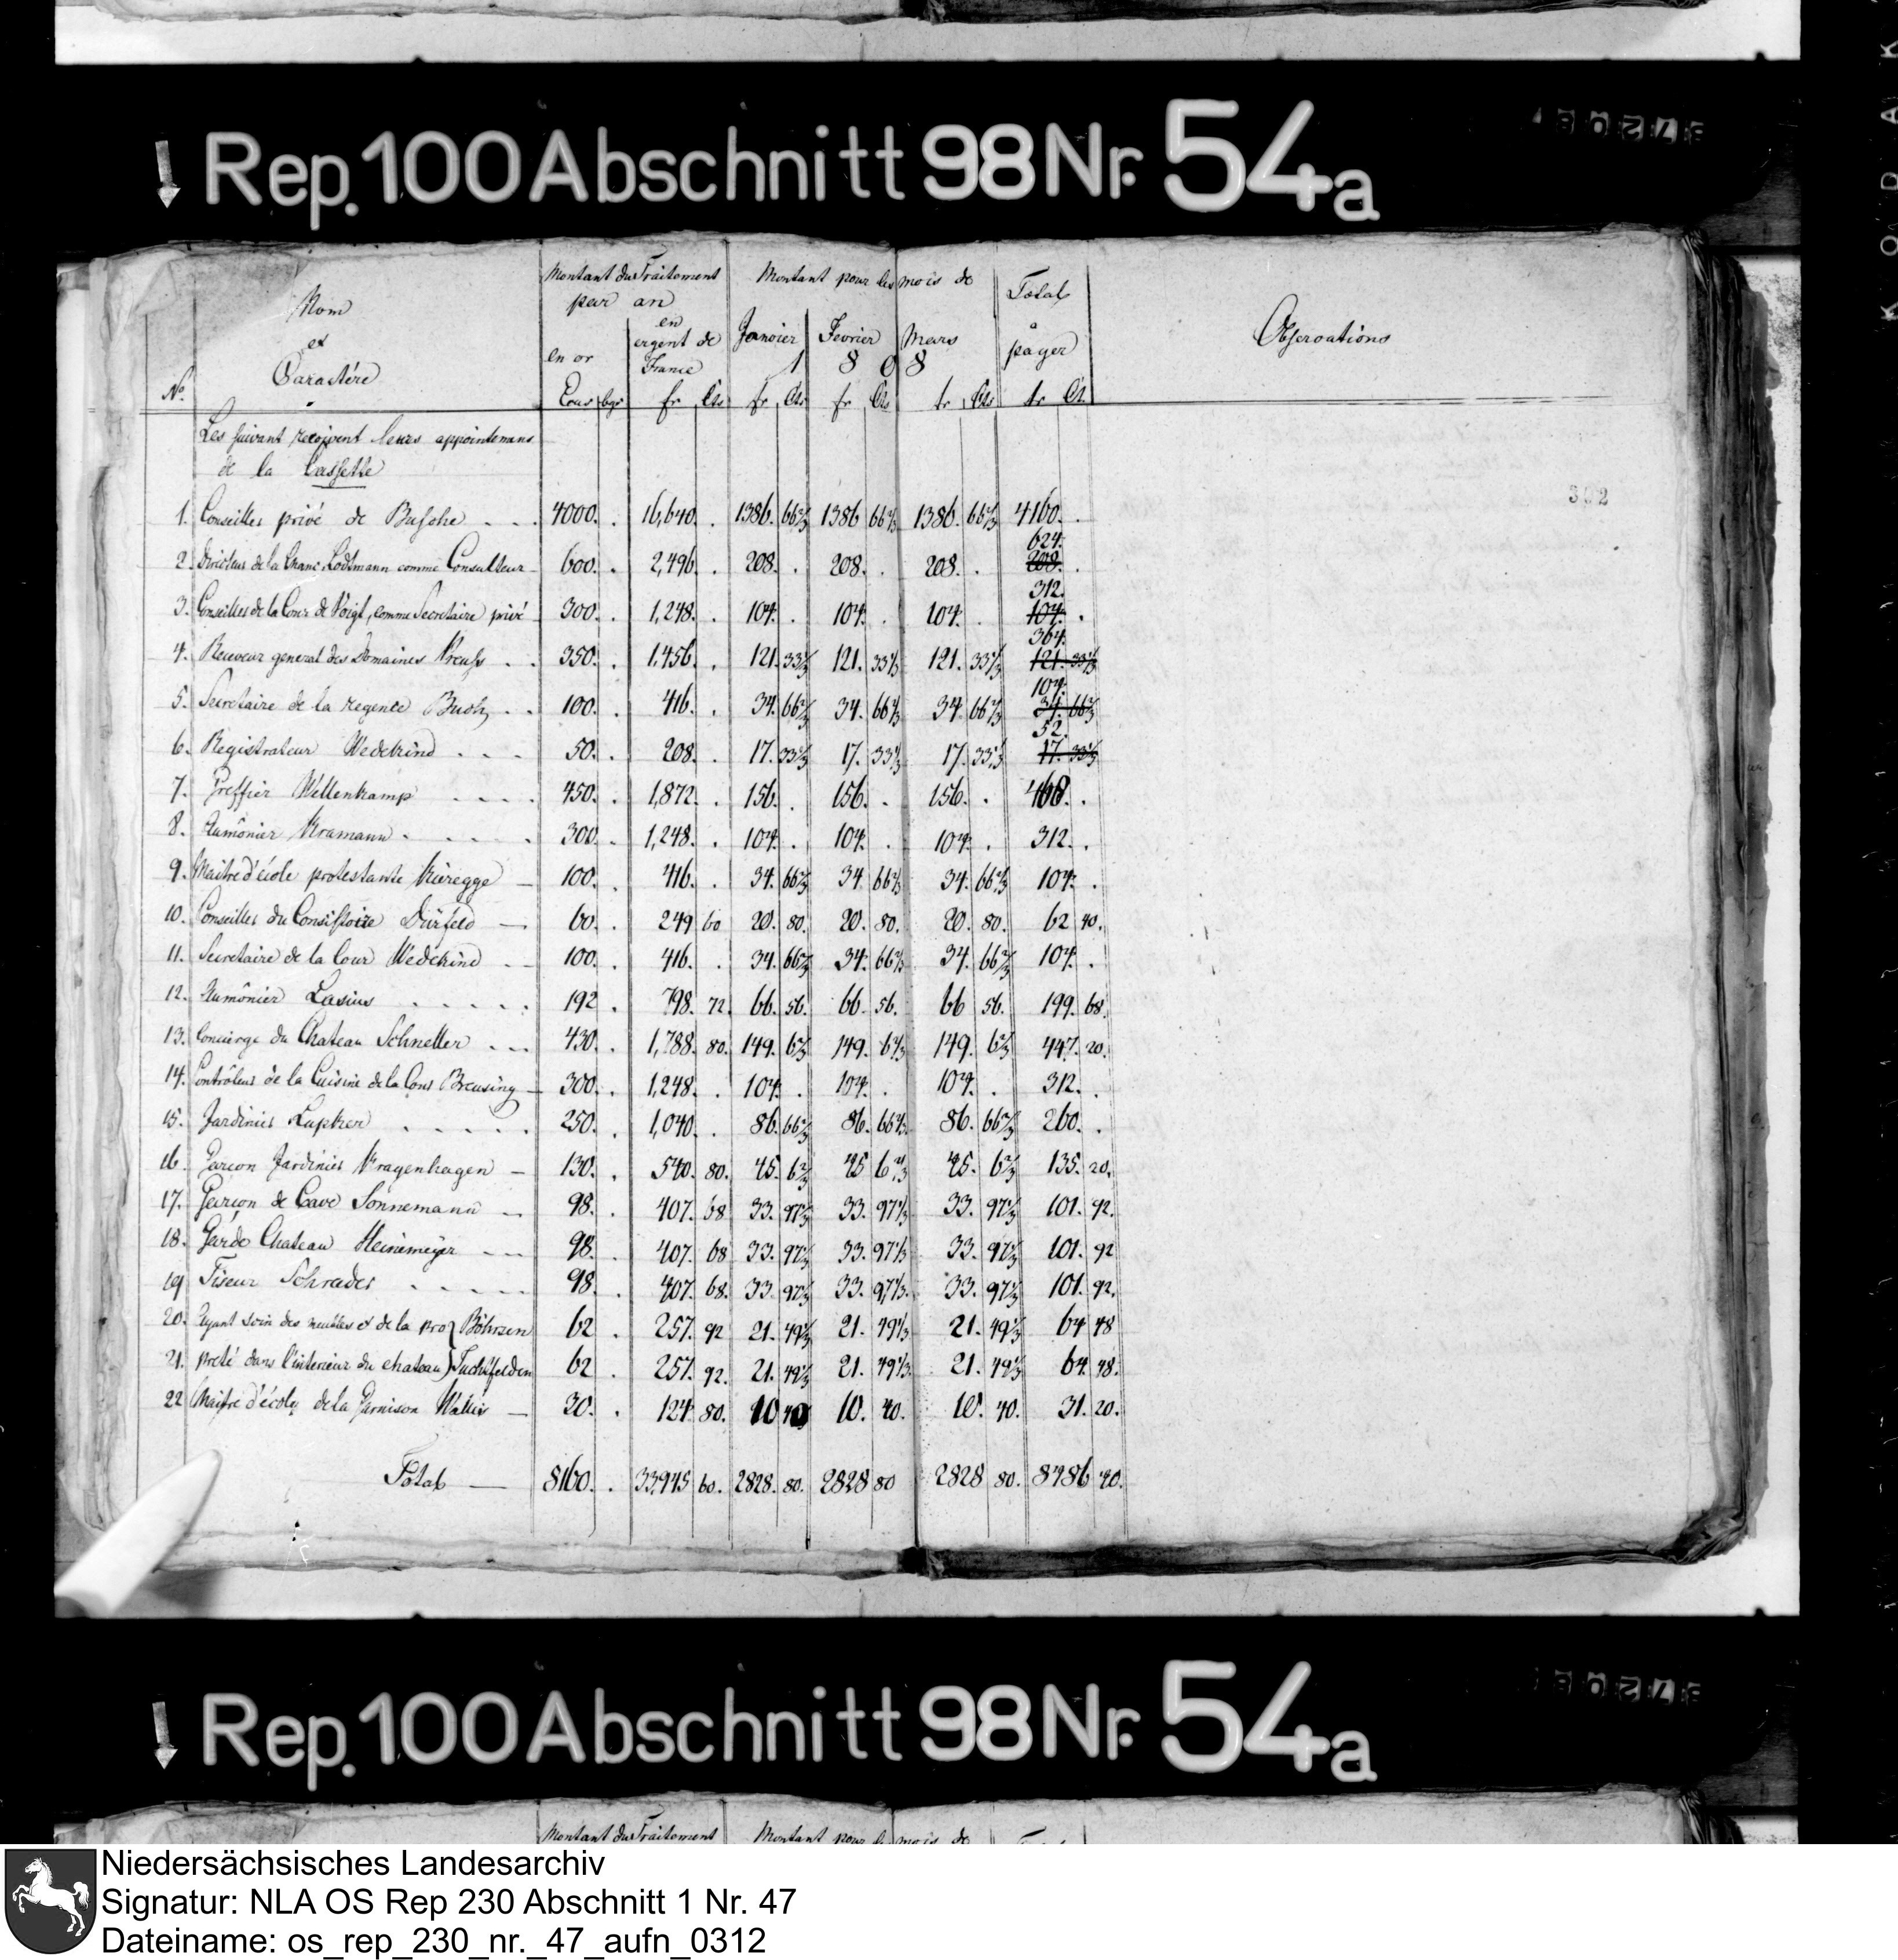 37208
Rep. 100 Abschnitt 98 Nr. 54a
KODAK
Nom et Caractére
Montant du Traitement par an
Montant pour les mois de
Total à payer
Observations
en or
en argent de France
Janvier Fevrier Mars
1 8 0 8
No. Ecus bgr fr Cts fr Cts fr Cts fr Cts fr Ct.
Les suivant reçoivent leurs appointemens
de la Cassette
302
1. Conseiller privé de Busche . . . 4000. . 16,640. . 1386. 66⅔ 1386 66⅔ 1386. 66⅔ 4160. .
624.
2. Directeur de la Chanc. Lodtmann comme Consulteur 600. . 2,496. . 208. . 208. . 208. . 208. .
312.
3. Conseiller de la Cour de Voigt, comme Secretaire privé 300. . 1,248. . 104. . 104. . 104. . 104. .
364.
4. Receveur general des Domaines Preuss . . 350. . 1,456. . 121. 33⅓ 121. 33⅓ 121. 33⅓ 121. 33⅓
104.
5. Secretaire de la regence Buch, . . 100. . 416. . 34. 66⅔ 34. 66⅔ 34. 66⅔ 34. 66⅔
52.
6. Registrateur Wedekind . . . 50. . 208. . 17. 33⅓ 17. 33⅓ 17. 33⅓ 17. 33⅓
7. Greffier Wellenkamp . . . . 450. . 1,872. . 156. . 156. . 156. . 468. .
8. Aumônier Kramann . . . . 300. . 1,248. . 104. . 104. . 104. . 312. .
9. Maitre d'école protestante Kieregge — 100. . 416. . 34. 66⅔ 34. 66⅔ 34. 66⅔ 104. .
10. Conseiller du Consistoire Dürfeld — 60. . 249 60 20. 80. 20. 80. 20. 80. 62 40.
11. Secretaire de la Cour Wedekind . — 100. . 416. . 34. 66⅔ 34. 66⅔ 34. 66⅔ 104. .
12. Aumônier Lasius . . . . . 192 . 798. 72. 66. 56. 66. 56. 66 56. 199. 68.
13. Concierge du Chateau Schneller . . . 430. . 1,788. 80. 149. 6⅔ 149. 6⅔ 149. 6⅔ 447. 20.
14. Contrôleur de la Cuisine de la Cour Breusing — 300. . 1,248. . 104. . 104. . 104. . 312. .
15. Jardinier Lupker . . . . . 250. . 1,040. . 86. 66⅔ 86. 66⅔ 86. 66⅔ 260. .
16. Garcon Jardinier Kragenhagen — 130. . 540. 80. 45. 6⅔ 45 6⅔ 45. 6⅔ 135. 20.
17. Garçon de Cave Sonnemann — 98. . 407. 68 33. 97⅓ 33. 97⅓ 33. 97⅓ 101. 92.
18. Garde Chateau Heinemeyer — — 98. . 407. 68 33. 97⅓ 33. 97⅓ 33. 97⅓ 101. 92
19 Tiseur Schrader . . . . . 98. . 407. 68. 33. 97⅓ 33. 97⅓. 33. 97⅓ 101. 92.
20. Ayant soin des meubles et de la pro} Böhrsen 62 . 257. 92 21. 49⅓ 21. 49⅓ 21. 49⅓ 64 48
21. preté dans l'interieur du chateau} Tuchtfelden 62 . 257. 92. 21. 49⅓ 21. 49⅓. 21. 49⅓ 64. 48.
22 Maitre d'école de la Garnison — 30. . 124. 80. 10 40 10. 40. 10. 40. 31. 20.
Total — 8160. . 33,945 60. 2828. 80. 2828 80 2828 80. 8486 40.
37208
Rep. 100 Abschnitt 98 Nr. 54a
Montant du Traitement Montant pour les mois de
Niedersächsisches Landesarchiv
Signatur: NLA OS Rep 230 Abschnitt 1 Nr. 47
Dateiname: os_rep_230_nr._47_aufn_0312